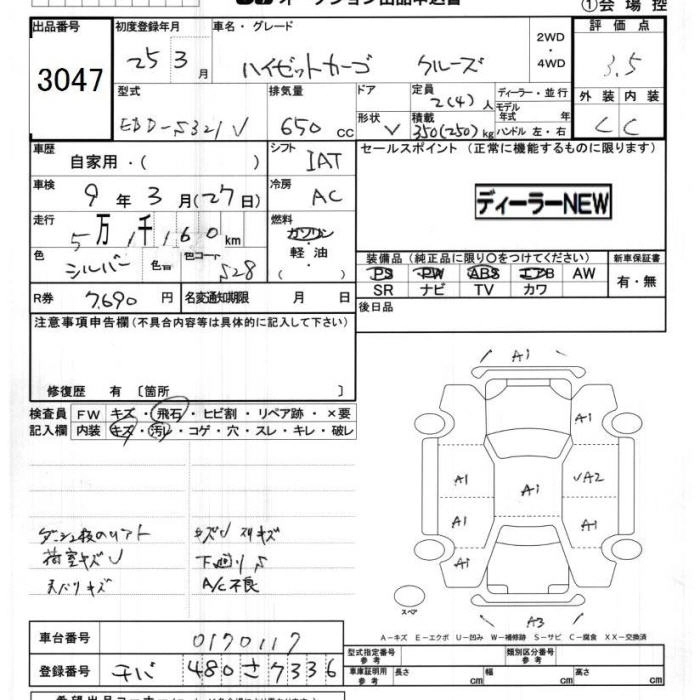 ①会場控
出品番号 初度登録年月 車名・グレード 評価点
3047
25 3 月 ハイゼットカーゴ クルーズ 2WD・4WD 3.5
型式 排気量 ドア 定員 2(4)人 ディーラー・並行 外装 内装
EBD-S321V 650 cc 形状 V 積載 350(250)kg モデル年式 年 ハンドル 左・右 C C
車歴 自家用・( ) シフト IAT セールスポイント (正常に機能するものに限ります)
車検 9 年 3 月(27日) 冷房 AC ディーラーNEW
走行 5万1千160km 燃料 ガソリン・軽油 ( )
色 シルバー 色替 色コード S28
装備品(純正品に限り○をつけてください) 新車保証書
PS PW ABS エアB AW 有・無
SR ナビ TV カワ
R券 7690 円 名変通知期限 月 日 後日品
注意事項申告欄(不具合内容等は具体的に記入して下さい)
修復歴 有 〔箇所 〕
検査員 FW キズ・飛石・ヒビ割・リペア跡・×要
記入欄 内装 キズ・汚レ・コゲ・穴・スレ・キレ・破レ
A1
A1
A1 A1 A2
A1 A1
A1
A3
スペア
荷室キズ 下廻りS
天バリキズ A/C不良
A-キズ E-エクボ U-凹み W-補修跡 S-サビ C-腐食 XX-交換済
車台番号 0170117
登録番号 チバ 480 さ 7336
型式指定番号 参考 類別区分番号 参考
車庫証明用 参考 長さ cm 幅 cm 高さ cm